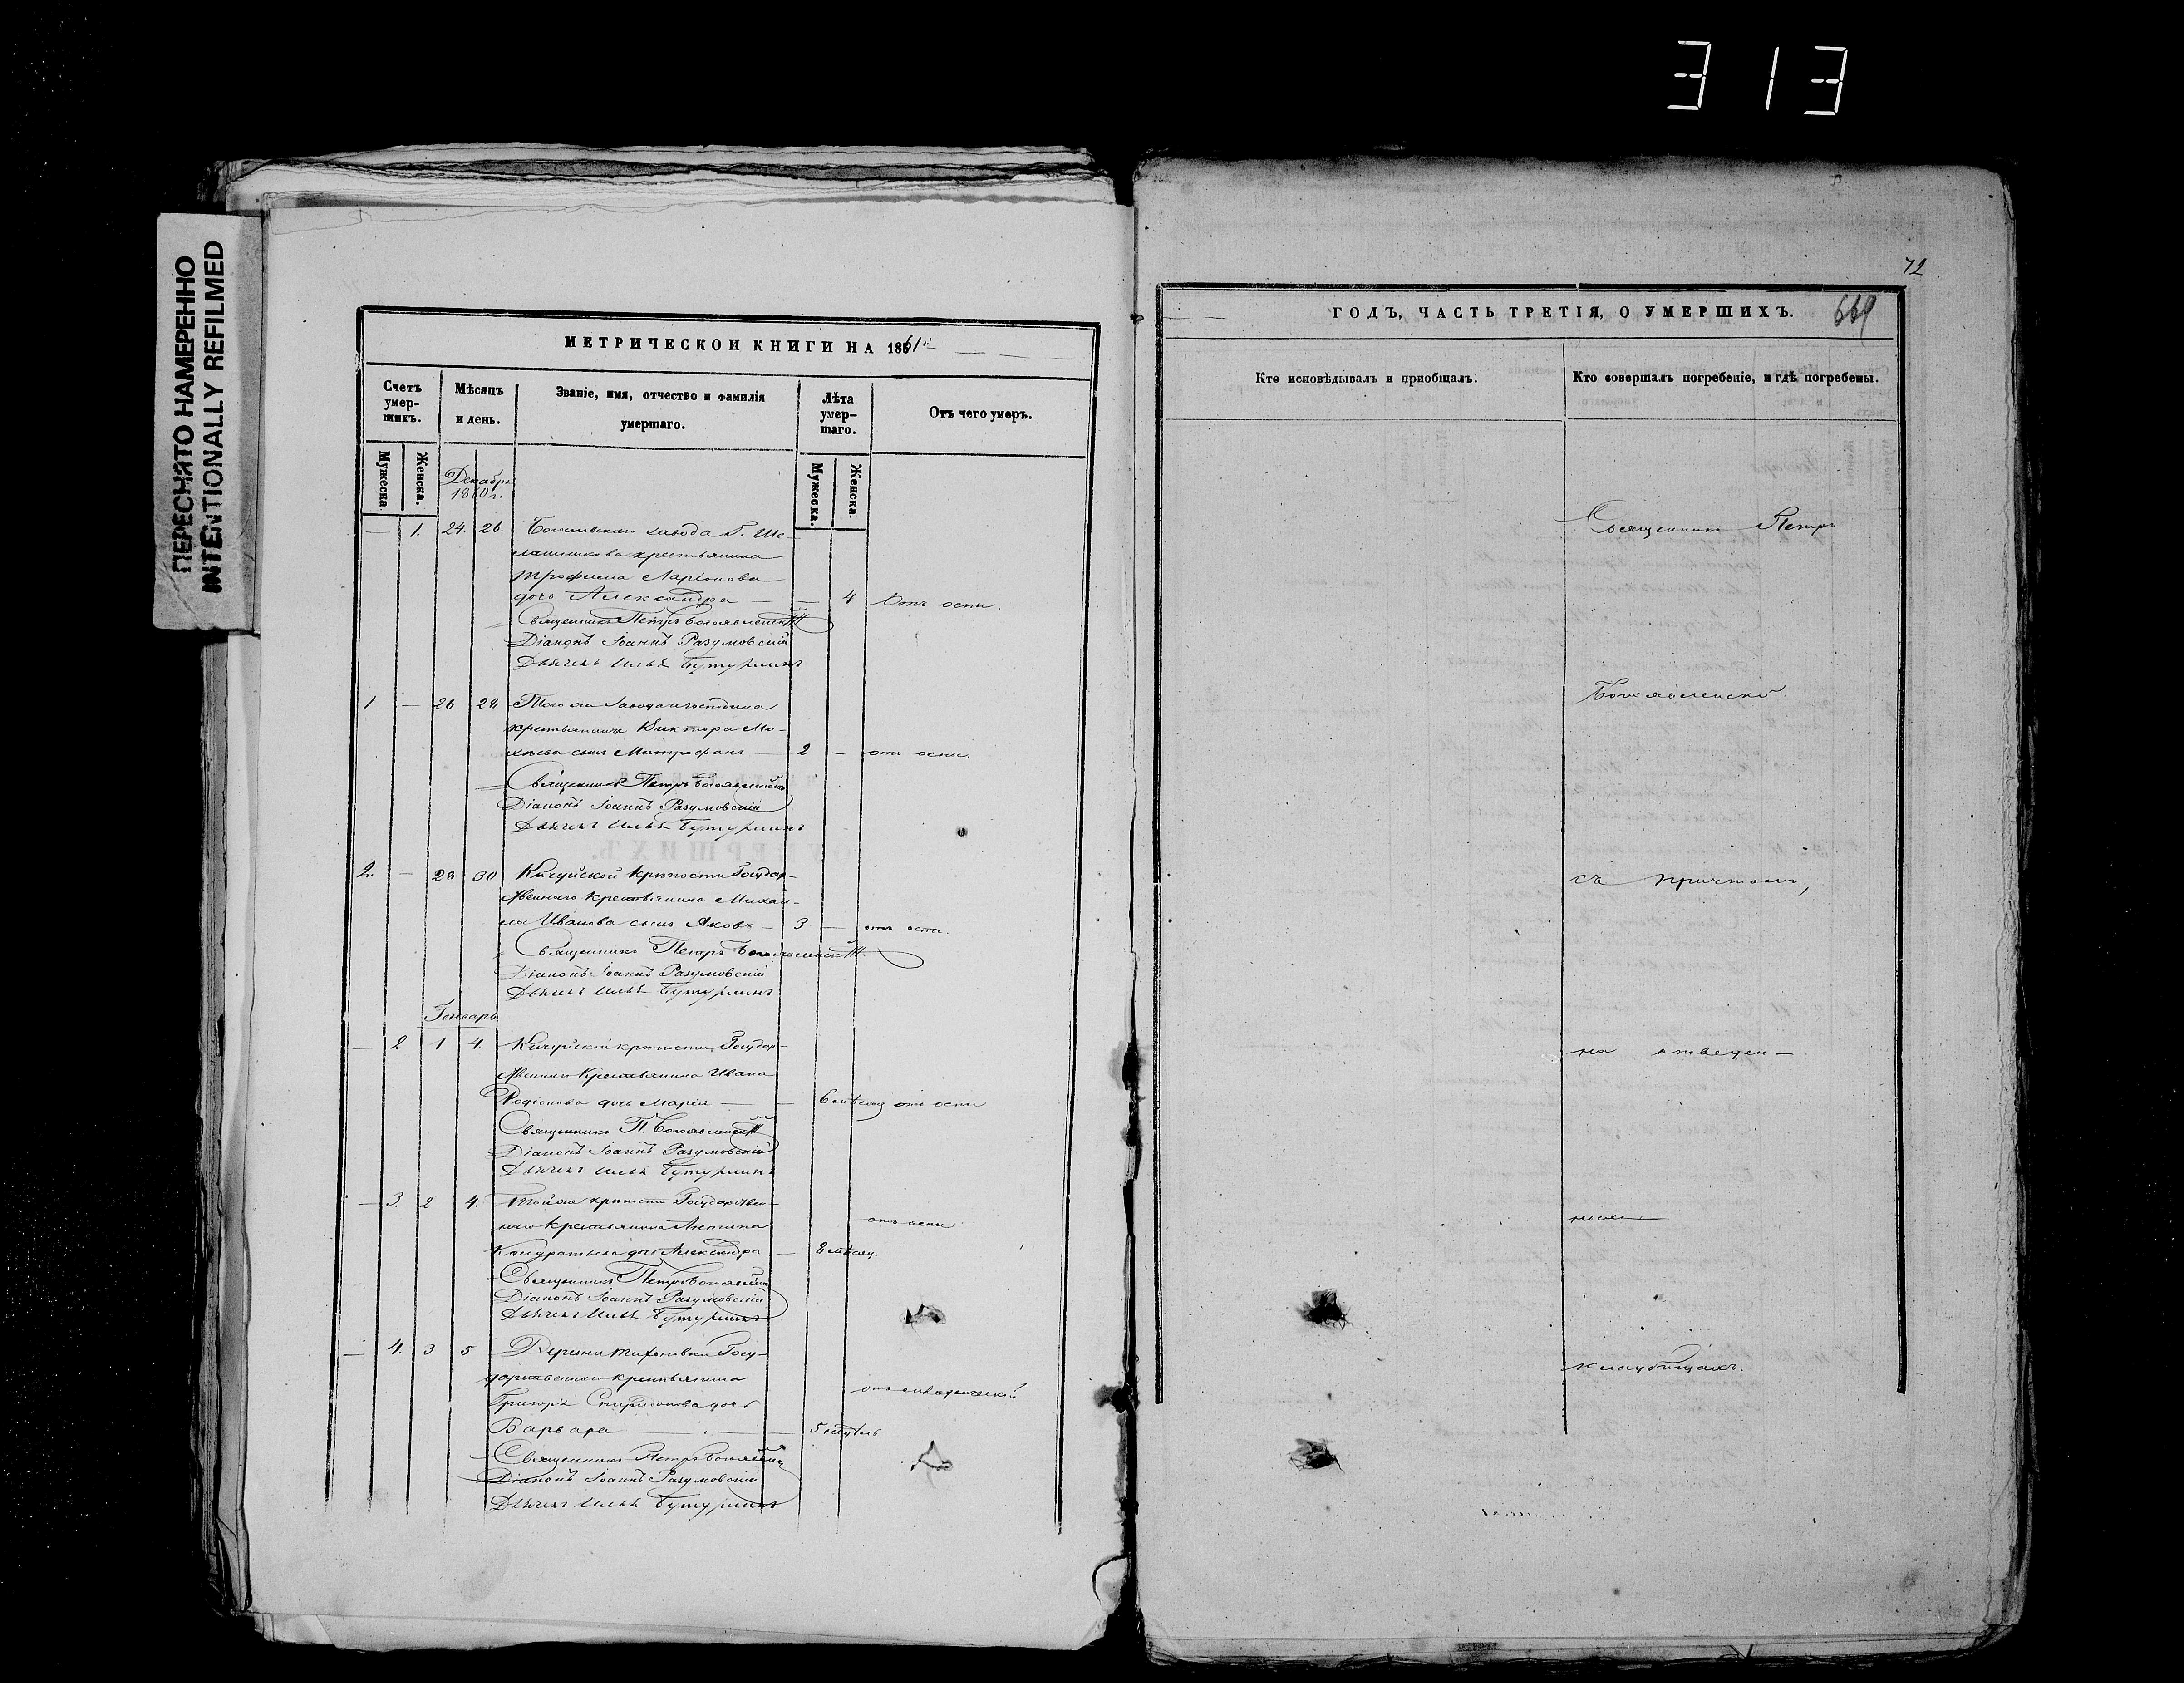 313
ПЕРЕСНЯТО НАМЕРЕННО
INTENTIONALLY REFILMED
МЕТРИЧЕСКОИ КНИГИ НА 1861й
Счетъ умер-шихъ.
Мѣсяцъ и день.
Званіе, имя, отчество и фамилія умершаго.
Лѣта умер-шаго.
Отъ чего умеръ.
Мужеска.
Женска.
Мужеска.
Женска.
Декабрь
1860 г.
— 1. 24. 26. завода Г. Ше-
крестьянина
Трофима Ларіонова
дочь Александра — — 4 Отъ оспы.
Священникъ Петръ Богоявленскій
Діаконъ Іоаннъ Разумовскій
Дьячекъ Илья Бутурлинъ
1 — 26 28 Того же завода господина
крестьянина Виктора Ми-
хѣева сынъ Митрофанъ — 2 — отъ оспы.
Священникъ Петръ Богоявленскій
Діаконъ Іоаннъ Разумовскій
Дьячекъ Илья Бутурлинъ
2. — 28 30 Кичуйской крѣпости Государ-
ственнаго крестьянина Михаи-
ла Иванова сынъ Яковъ — 3 — отъ оспы.
Священникъ Петръ Богоявленскій
Діаконъ Іоаннъ Разумовскій
Дьячекъ Илья Бутурлинъ
Генварь
— 2 1 4. Кичуйской крѣпости Государ-
ственнаго крестьянина Ивана
Родіонова дочь Марія — — 6 мѣсяц отъ оспы
Священникъ П. Богоявленскій
Діаконъ Іоаннъ Разумовскій
Дьячекъ Илья Бутурлинъ
— 3. 2 4. Той же крѣпости Государствен-
наго крестьянина Антипа отъ оспы
Кандратьева дочь Александра — 8 мѣсяц.
Священникъ Петръ Богоявленскій
Діаконъ Іоаннъ Разумовскій
Дьячекъ Илья Бутурлинъ
— 4. 3 5 Деревни Тихоновки Госу-
дарственнаго крестьянина
Григорія Спиридонова дочь отъ
Варвара — — 5 недѣль
Священникъ Петръ Богоявленскій
Діаконъ Іоаннъ Разумовскій
Дьячекъ Илья Бутурлинъ
72
ГОДЪ, ЧАСТЬ ТРЕТІЯ, О УМЕРШИХЪ.
669
Кто исповѣдывалъ и пріобщалъ.
Кто совершалъ погребеніе, и гдѣ погребены.
Священникъ Петръ
Богоявленскій
съ причтомъ,
на отведен-
ныхъ
кладбищахъ.